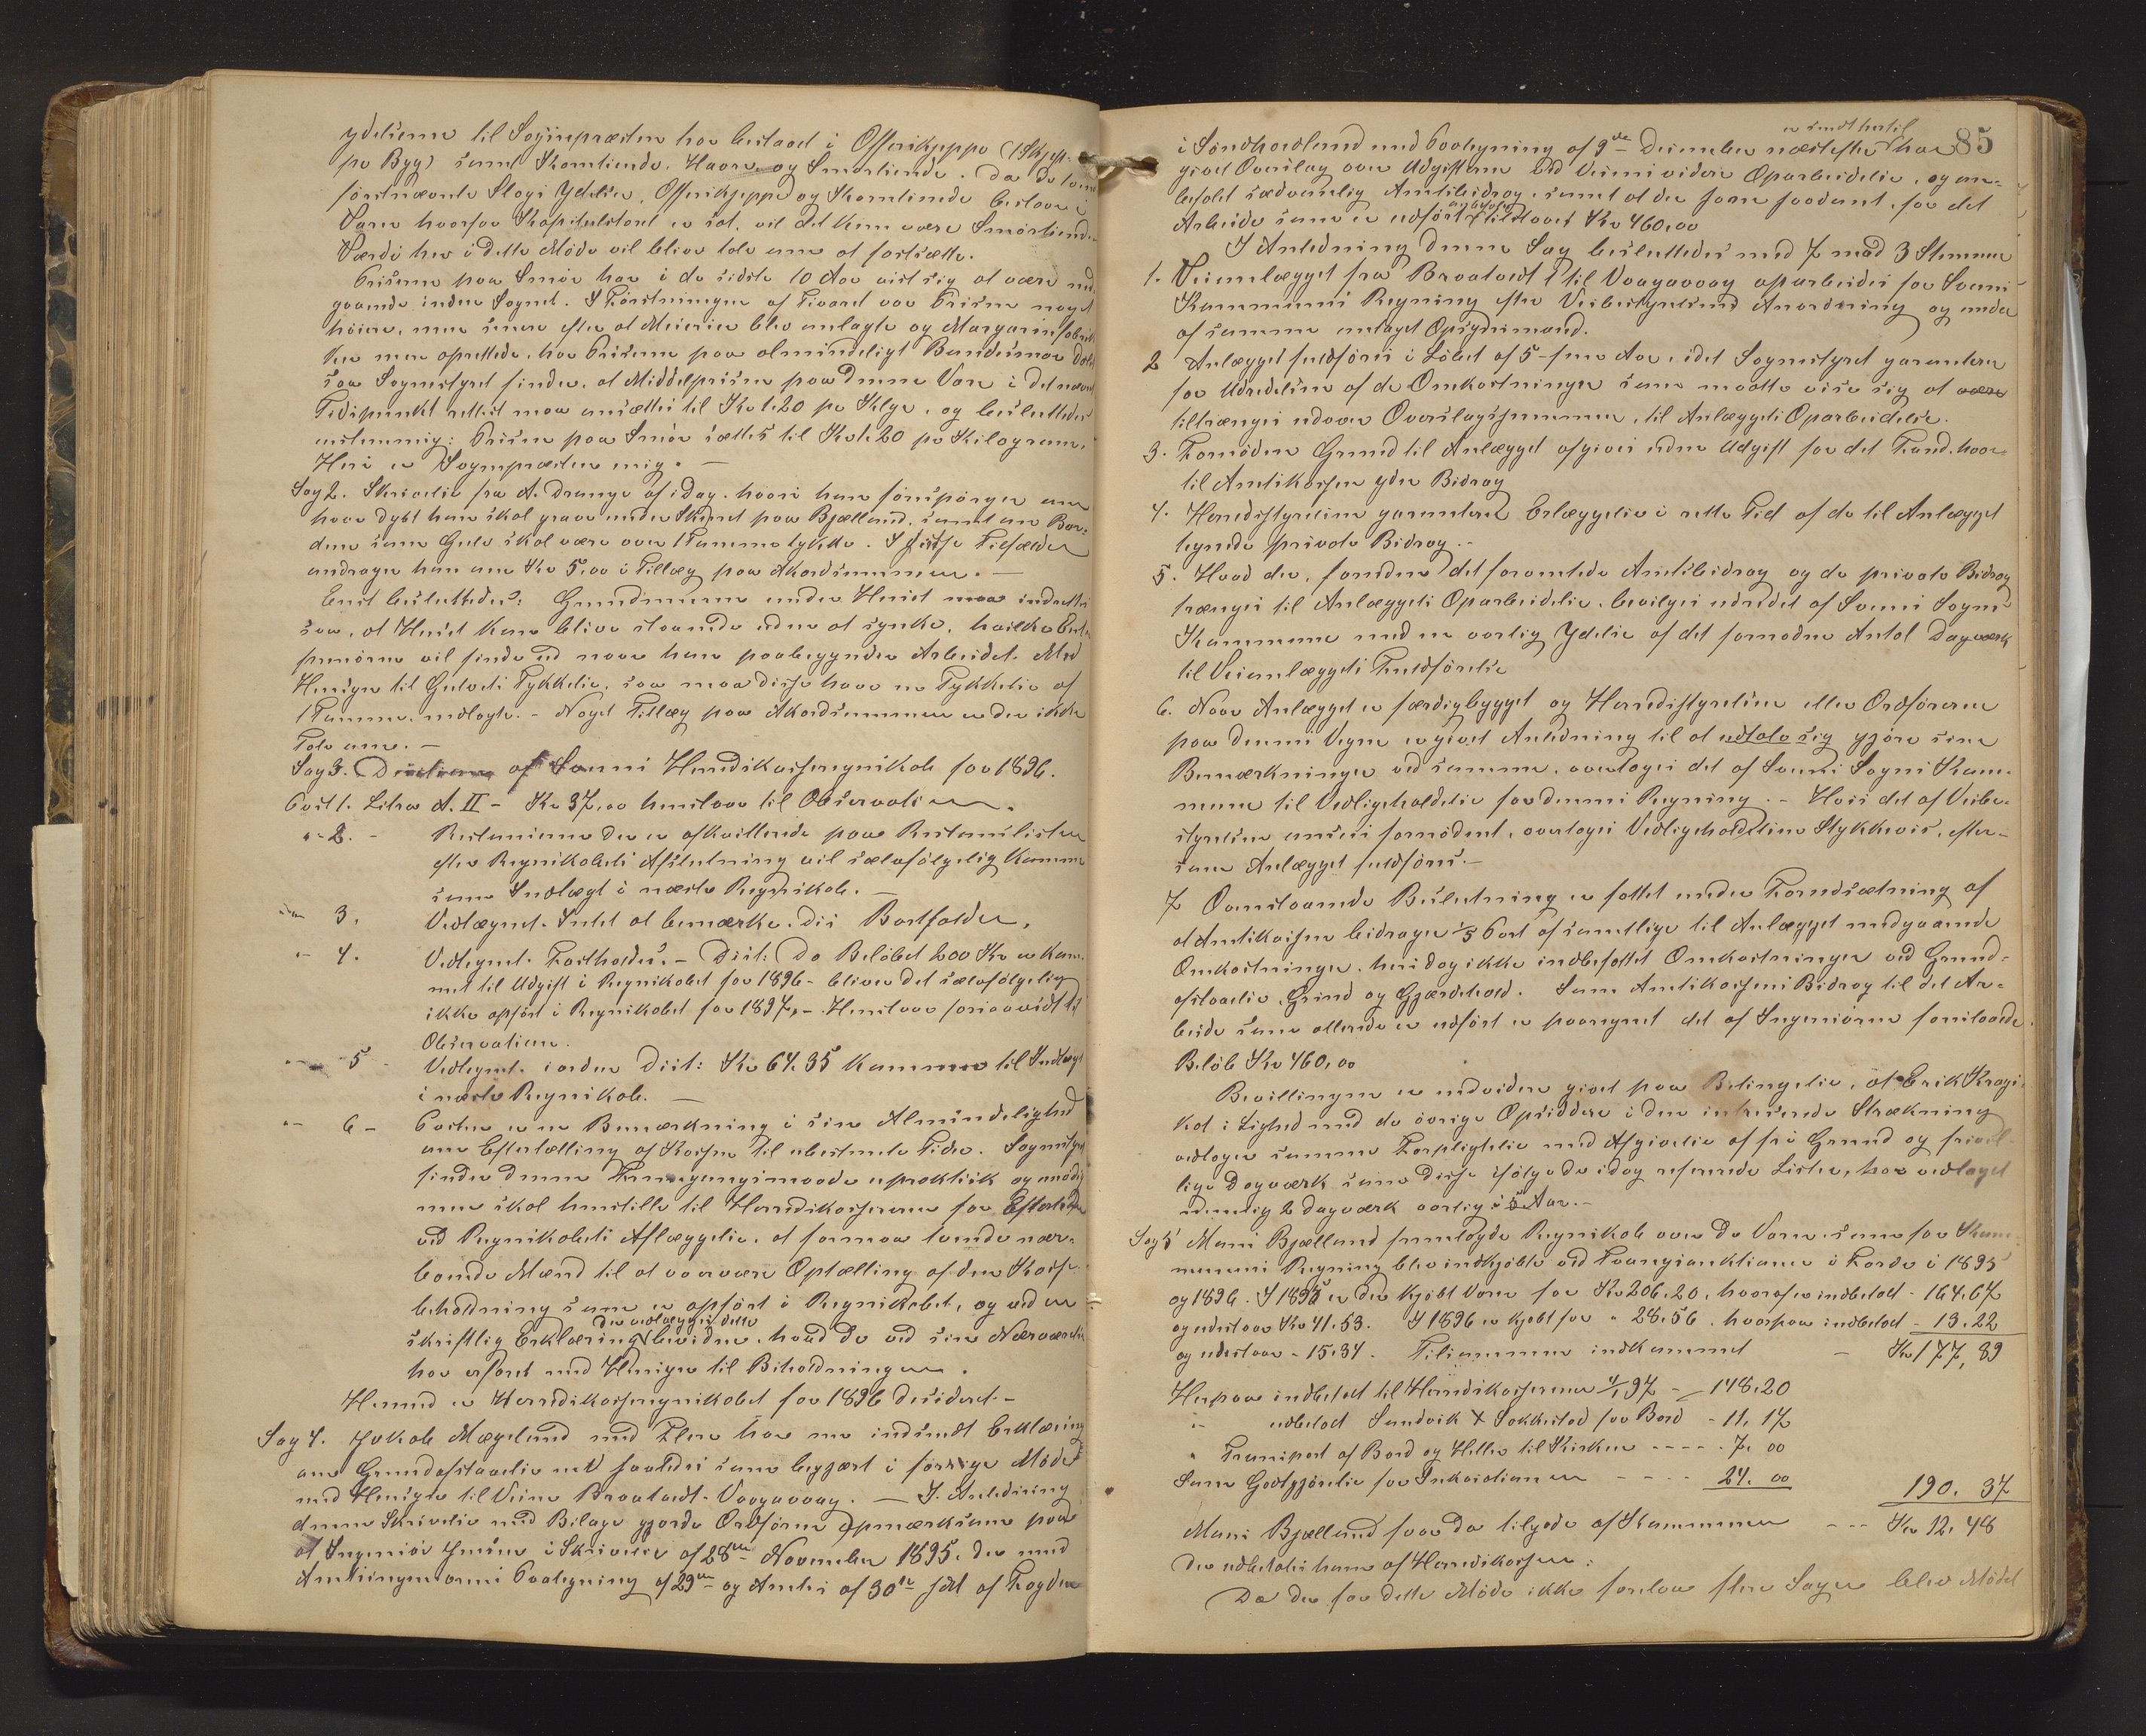 ydelserne til Sognepræsten har bestaaet i Offerskjeppe (1 Skjep-
pe Byg) samt Korntiende, Havre og Smørtiende. Da de tvende
førstnævnte Slags Ydelser, Offerskjeppe og Korntiende bestaar i
Varer hvorfor Kapitelstaxt er sat, vil det kun være Smørtiendens
Værdi her i dette Møde vil blive tale om at fastsætte.
Prisene paa Smør har i de sidste 10 Aar vist sig at være ned-
gaaende inden Sognet. I Førstningen af Tiaaret var Prisen noget
høiere, men senere efter at Meierier blev anlagte og Margarinfabrik-
ker mere oprettede, har Prisene paa almindeligt Bondesmør dalet
saa Sognestyret finder, at Middelprisen paa denne Vare i det nævnte
Tidspunkt rettest maa ansættes til Kr 1.20 pr Kilgr. og besluttedes
enstemmig: Prisen paa Smør sættes til Kr 1.20 pr Kilogram.
Heri er Sognepræsten enig. —
Sag 2. Skrivelse fra A. Drange af idag, hvori han forespørger om
hvor dybt han skal grave under Skuret paa Bjælland, samt om Bor-
dene som Gulv skal være over 1 Tomme tykke. I sidste Tilfælde
androger han om Kr 5,00 i Tillæg paa Akordsummen. —
Enst besluttedes: Grundmuren under Huset maa indrettes
saa, at Huset kan blive staaende uden at synke, hvilket Entre-
prenøren vil finde ud naar han paabegynder Arbeidet. Med
Hensyn til Gulvets Tykkelse, saa maa disse have en Tykkelse af
1 Tomme, nedlagte. - Noget Tillæg paa Akordsummen er der ikke
Tale om. —
Sag 3. Decision af Sveens Herredskasseregnskab for 1896.
Post 1. Litra A. II - Kr 37,00 henstaar til Observation.
" - 2. - Restancerne der er afkvitterede paa Restancelisten
efter Regnskabets Afslutning vil selvfølgelig komme
som Indtægt i næste Regnskab. —
" 3. Vedtegnet. Intet at bemærke. Dis: Bortfalder.
" - 4. Vedtegnet. Fastholdes. - Decis: Da Beløbet 200 Kr er kom-
met til Udgift i Regnskabet for 1896 - bliver det selvfølgelig
ikke opført i Regnskabet for 1897. - Henstaar forsaavidt til
Observation.
" - 5 - Vedtegnet. i orden Decis: Kr 64.35 kommer til Indtægt
i næste Regnskab. —
" - 6 - Posten er en Bemærkning i sin Almindelighed
om Eftertælling af Kassen til ubestemte Tider. Sognestyret
finder denne Fremgangsmaade upraktisk og unødig
men skal henstille til Herredskassereren for Eftertiden
ved Regnskabets Aflæggelse, at formaa tvende nær-
boende Mænd til at overvære Optælling af den Kasse-
beholdning som er opført i Regnskabet, og ved en
der vedlægges dette
skriftlig Erklæring bevidne, hvad de ved sin Nærværelse
har erfaret med Hensyn til Beholdningen.
Hermed er Herredskasseregnskabet for 1896 decideret. -
Sag 4. Jakob Mæglund med Flere har nu indsendt Erklæring
om Grundafstaaelse med saaledes som begjæret i forrige Møde
med Hensyn til Veien Braatvedt - Vaagavaag. — I Anledning
denne Skrivelse med Bilage gjorde Ordføreren Opmærksom paa
at Ingeniør Jensen i Skrivelse af 28de November 1895, der med
Amtsingeniørens Paategning af 29de og Amtets af 30te s.M. af Fogden
er sendt hertil 85
i Søndhordland med Paategning af 9de December næstefter har
givet Overslag over Udgifterne ved Veiens videre Oparbeidelse, og an-
befalet sædvanlig Amtsbidrag, samt at der som saadant, for det
Arbeide som er udført tilstaaes Kr 460,00
I Anledning denne Sag besluttedes med 7 mod 3 Stemmer
1. Veianlægget fra Braatvedt til Vaagavaag oparbeides for Sveens
Kommunes Regning efter Veibestyrelsens Anordning og under
af samme antaget Opsynsmand.
2 Anlægget fuldføres i Løbet af 5-fem Aar, idet Sognestyret garanterer
for Udredelsen af de Omkostninger som maatte vise sig at være
tiltrænges udover Overslagssummen, til Anlæggets Oparbeidelse.
3. Fornøden Grund til Anlægget afgives uden Udgift for det Fond, hvor-
til Amtskassen yder Bidrag
4. Herredsstyrelsen garanterer Erlæggelse i rette Tid af de til Anlægget
tegnede private Bidrag. -
5. Hvad der, foruden det forventede Amtsbidrag og de private Bidrag
trænges til Anlæggets Oparbeidelse, bevilges udredet af Sveens Sogns
Kommune med en aarlig Ydelse af det fornødne Antal Dagværk
til Veianlæggets Fuldførelse
6. Naar Anlægget er færdigbygget og Herredsstyrelsen eller Ordføreren
paa dennes Vegne er givet Anledning til at udtale sig gjøre sine
Bemærkninger ved samme, overtages det af Sveens Sogns Kom-
mune til Vedligeholdelse for dennes Regning. - Hvis det af Veibe-
styrelsen ansees fornødent, overtages Vedligeholdelsen Stykkevis, efter-
som Anlægget fuldføres. —
7 Ovenstaaende Beslutning er fattet under Forudsætning af
at Amtskassen bidrager 1/5 Part af samtlige til Anlægget medgaaende
Omkostninger, heri dog ikke indbefattet Omkostninger ved Grund-
afstaaelse, Grind og Gjærdehold. Som Amtskassens Bidrag til det Ar-
beide som allerede er udført er paaregnet det af Ingeniøren foreslaaede
Beløb Kr 460,00
Bevillingen er endvidere givet paa Betingelse, at Erik Krogs-
kot i Lighed med de øvrige Opsiddere i den interesserede Strækning
vedtager samme Forpligtelse med Afgivelse af fri Grund og frivil-
lige Dagværk som disse ifølge de idag refererede Lister, har vedtaget
nemlig 2 Dagværk aarlig i 5 Aar. -
Sag 5 Mons Bjælland fremlagde Regnskab over de Varer som for Kom-
munens Regning blev indkjøbte ved Tvangsauktioner i Førde i 1895
og 1896. I 1895 er der kjøbt Varer for Kr 206.20, hvoraf er indbetalt - 164.67
og udestaar Kr 41.53. I 1896 er kjøbt for " 28.56. hvorpaa indbetalt - 13.22
og udestaar - 15.34. Tilsammen indkommet — Kr 177,89
Herpaa indbetalt til Herredskassereren 4/1 97 - 148.20
" - udbetalt Sandvik & Sakkestad for Bord - 11.17
" Transport af Bord og Heller til Kirken - - - - 7.00
Som Godtgjørelse for Inkassationen - - - - 24.00 190.37
Mons Bjælland har da tilgode af Kommunen - - - Kr 12.48
der udbetales ham af Herredskassen.
Da der for dette Møde ikke forelaa flere Sager blev Mødet